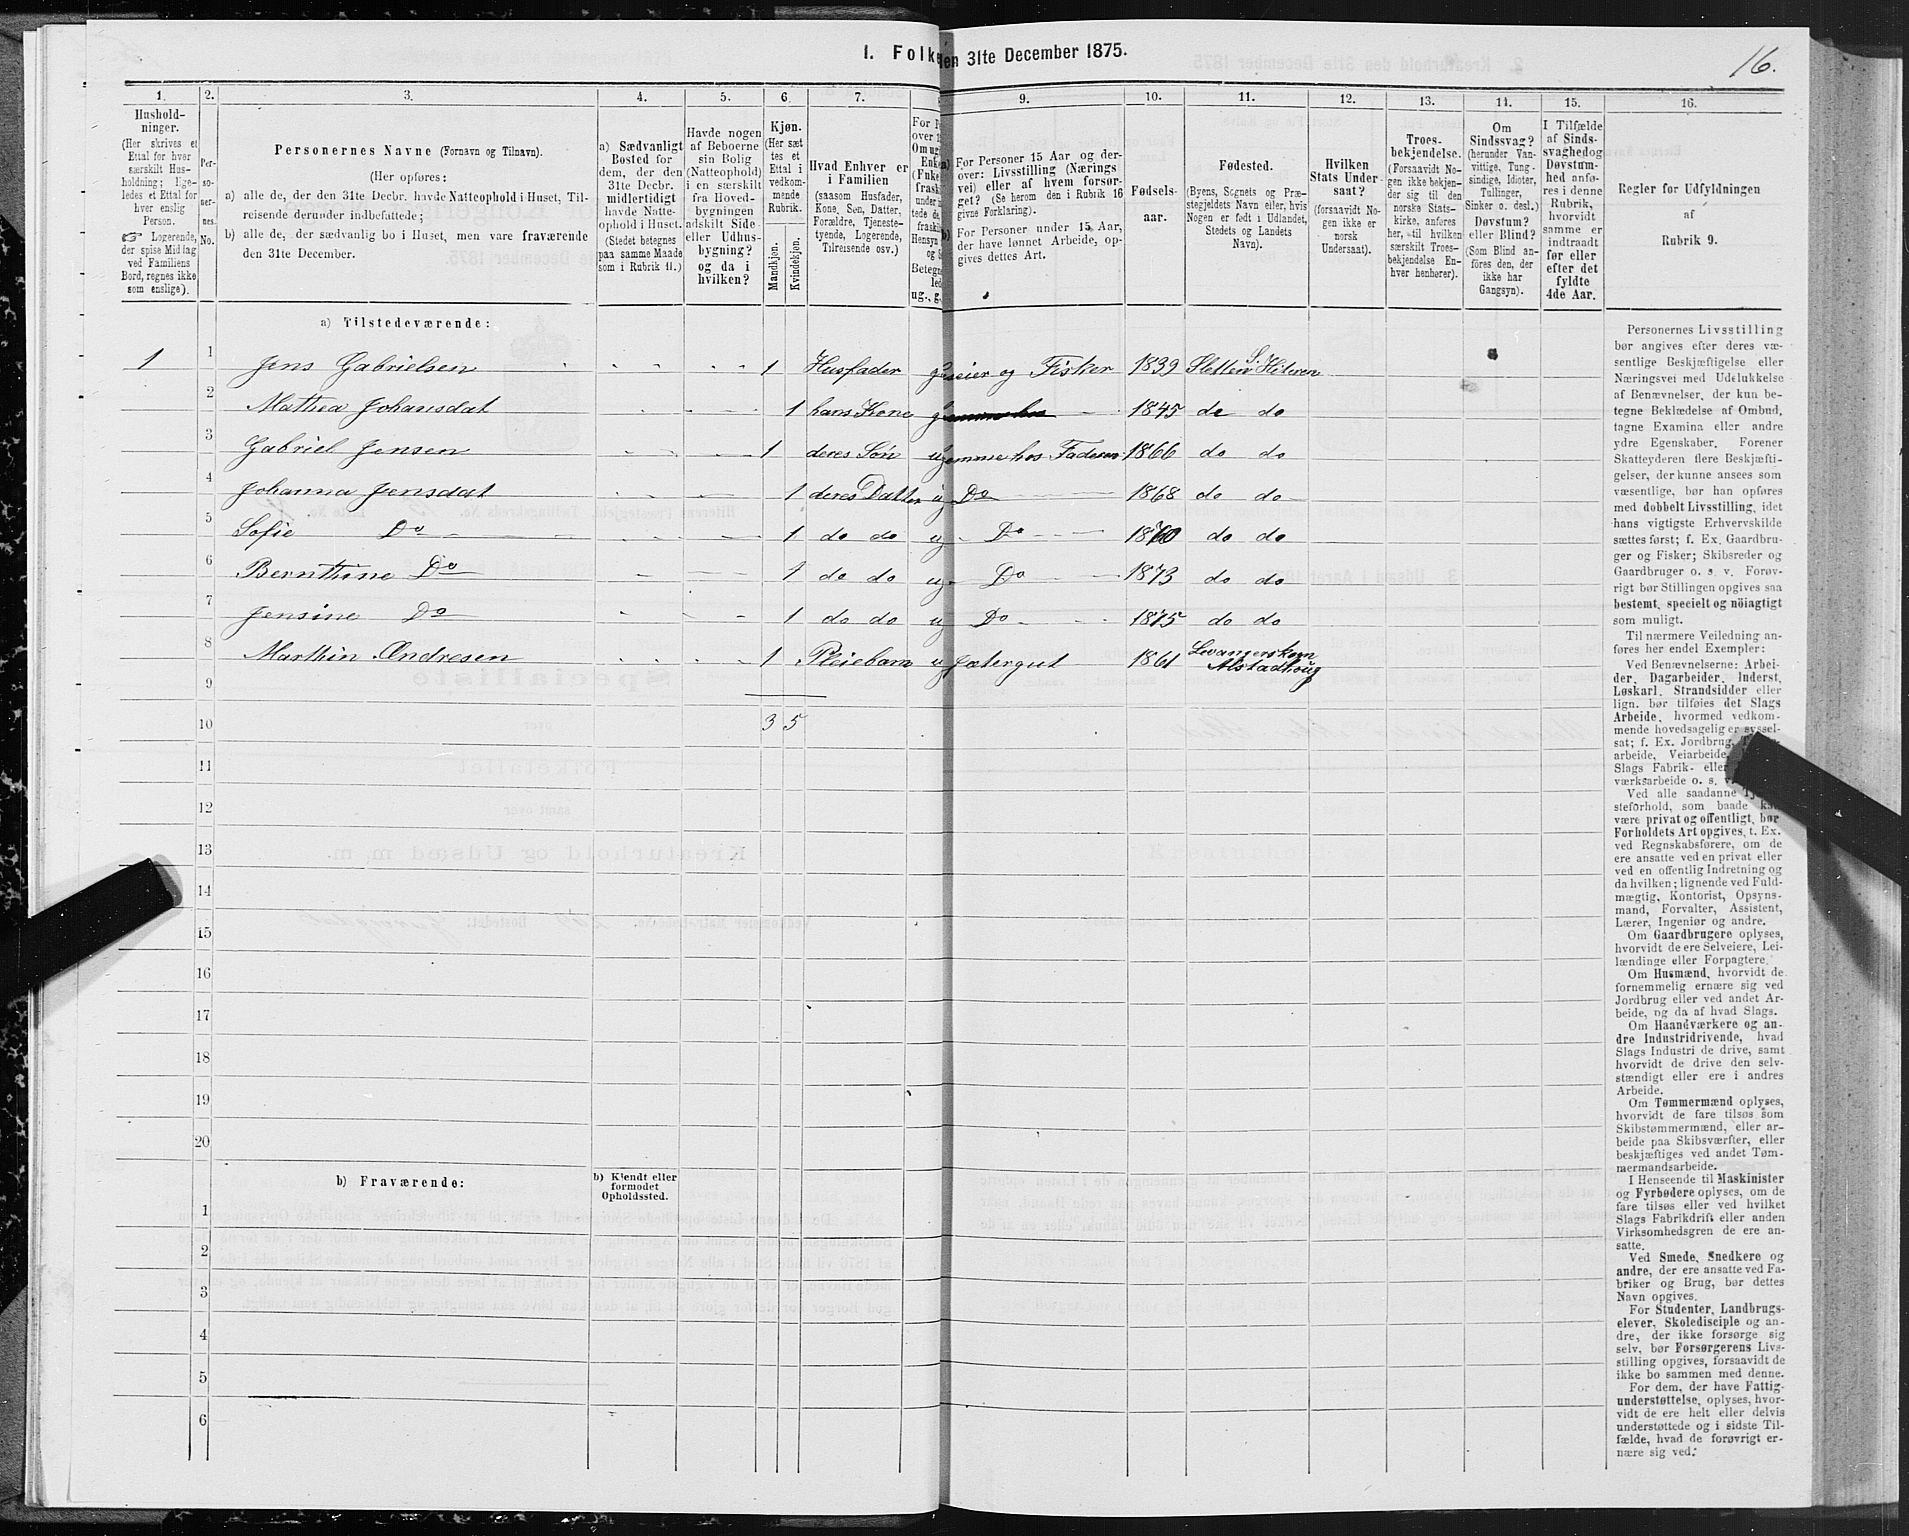 1. Folke
den 31te December 1875.
16.
1.
2.
3.
4.
5.
6.
7.
9.
10.
11.
12.
13.
14.
15.
16.
Hushold-
ninger.
(Her skrives et
Ettal for hver
særskilt Hus-
holdning; lige-
ledes et Ettal for
hver enslig
Person.
☞ Logerende,
der spise Middag
ved Familiens
Bord, regnes ikke
som enslige).
Per-
so-
ner-
nes
No.
Personernes Navne (Fornavn og Tilnavn).
(Her opføres:
a) alle de, der den 31te Decbr. havde Natteophold i Huset, Til-
reisende derunder indbefattede;
b) alle de, der sædvanlig bo i Huset, men vare fraværende
den 31te December.
a) Sædvanligt
Bosted for
dem, der den
31te Decbr.
midlertidigt
havde Natte-
ophold i Huset.
(Stedet betegnes
paa samme Maade
som i Rubrik 11.)
Havde nogen
af Beboerne
sin Bolig
(Natteophold)
i en særskilt
fra Hoved-
bygningen
adskilt Side-
eller Udhus-
bygning?
og da i
hvilken?
Kjøn.
(Her sæt-
tes et
Ettal i
vedkom-
mende
Rubrik.
Mandkjøn.
Kvindekjøn.
Hvad Enhver er
i Familien
(saasom Husfader,
Kone, Søn, Datter,
Forældre, Tjeneste-
tyende, Logerende,
Tilreisende osv.)
For Personer 15 Aar og der-
over: Livsstilling (Nærings-
vei) eller af hvem forsør-
get? (Se herom den i Rubrik 16
givne Forklaring).
For Personer under 15 Aar,
der have lønnet Arbeide, op-
gives dettes Art.
Fødsels-
aar.
Fødested.
(Byens, Sognets og Præ-
stegjeldets Navn eller, hvis
Nogen er født i Udlandet,
Stedets og Landets
Navn).
Hvilken
Stats Under-
saat?
(forsaavidt No-
gen ikke er
norsk
Undersaat).
Troes-
bekjendelse.
(Forsaavidt No-
gen ikke bekjen-
der sig til den
norske Stats-
kirke, anføres
her, til hvilken
særskilt Troes-
bekjendelse En-
hver henhører).
Om
Sindssvag?
(herunder Van-
vittige, Tung-
sindige, Idioter,
Tullinger,
Sinker o. desl.)
Døvstum?
eller Blind?
(Som Blind an-
føres den, der
ikke har
Gangsyn).
I Tilfælde
af Sinds-
svaghed og
Døvstum-
hed anfø-
res i denne
Rubrik,
hvorvidt
samme er
indtraadt
før eller
efter det
fyldte
4de Aar.
Regler for Udfyldningen
af
Rubrik 9.
a) Tilstedeværende:
1 1 Jens Gabrielsen 1 Husfader g eier og Fisker 1839 Sletten S. Hiteren
2 Mathea Johansdat 1 hans Kone g 1845 do do
3 Gabriel Jensen 1 deres Søn u hjemme hos Faderen 1866 do do
4 Johanna Jensdat 1 deres Datter u Do 1868 do do
5 Sofie Do 1 do do u Do 1870 do do
6 Bernthine Do 1 do do u Do 1873 do do
7 Jensine Do 1 do do u Do 1875 do do
8 Marthin Andresen 1 Pleiebarn u Gjætergut 1861 Levangerskogn Alstadhoug
9
10 3 5
11
12
13
14
15
16
17
18
19
20
b) Fraværende:
b) Kjendt eller
formodet
Opholdssted.
1
2
3
4
5
6
Personernes Livsstilling
bør angives efter deres væ-
sentlige Beskjæftigelse eller
Næringsvei med Udelukkelse
af Benævnelser, der kun be-
tegne Beklædelse af Ombud,
tagne Examina eller andre
ydre Egenskaber. Forener
Skatteyderen flere Beskjæfti-
gelser, der kunne ansees som
væsentlige, bør han opføres
med dobbelt Livsstilling, idet
hans vigtigste Erhvervskilde
sættes først; f. Ex. Gaardbru-
ger og Fisker; Skibsreder og
Gaardbruger o. s. v. Forøv-
rigt bør Stillingen opgives saa
bestemt, specielt og nöiagtigt
som muligt.
Til nærmere Veiledning an-
føres her endel Exempler:
Ved Benævnelserne: Arbei-
der, Dagarbeider, Inderst,
Løskarl, Strandsidder eller
lign. bør tilføies det Slags
Arbeide, hvormed vedkom-
mende hovedsagelig er syssel-
sat; f. Ex. Jordbrug,
arbeide, Veiarbeide,
Slags Fabrik- eller
værksarbeide o. s. v.
Ved alle saadanne Tje-
steforhold, som baade kan
være privat og offentligt, bør
Forholdets Art opgives, t. Ex.
ved Regnskabsførere, om de
ere ansatte ved en privat eller
ved en offentlig Indretning og
da hvilken; lignende ved Fuld-
mægtig, Kontorist, Opsyns-
mand, Forvalter, Assistent,
Lærer, Ingeniør og andre.
Om Gaardbrugere oplyses,
hvorvidt de ere Selveiere, Lei-
lændinge eller Forpagtere.
Om Husmænd, hvorvidt de
fornemmelig ernære sig ved
Jordbrug eller ved andet Ar-
beide, og da af hvad Slags.
Om Haandværkere og an-
dre Industridrivende, hvad
Slags Industri de drive, samt
hvorvidt de drive den selv-
stændigt eller ere i andres
Arbeide.
Om Tømmermænd oplyses,
hvorvidt de fare tilsøs som
Skibstømmermænd, eller ar-
beide paa Skibsværfter, eller
beskjæftiges ved andet Tøm-
mermandsarbeide.
I Henseende til Maskinister
og Fyrbødere oplyses, om de
fare tilsøs eller ved hvilket
Slags Fabrikdrift eller anden
Virksomhedsgren de ere an-
satte.
Ved Smede, Snedkere og
andre, der ere ansatte ved Fa-
briker og Brug, bør dettes
Navn opgives.
For Studenter, Landbrugs-
elever, Skoledisciple og an-
dre, der ikke forsørge sig
selv, bør Forsørgerens Livs-
stilling opgives, forsaavidt de
ikke bo sammen med denne.
For dem, der have Fattig-
understøttelse, oplyses, hvor-
vidt de ere helt eller delvis
understøttede og i sidste Til-
fælde, hvad de forøvrigt er-
nære sig ved.